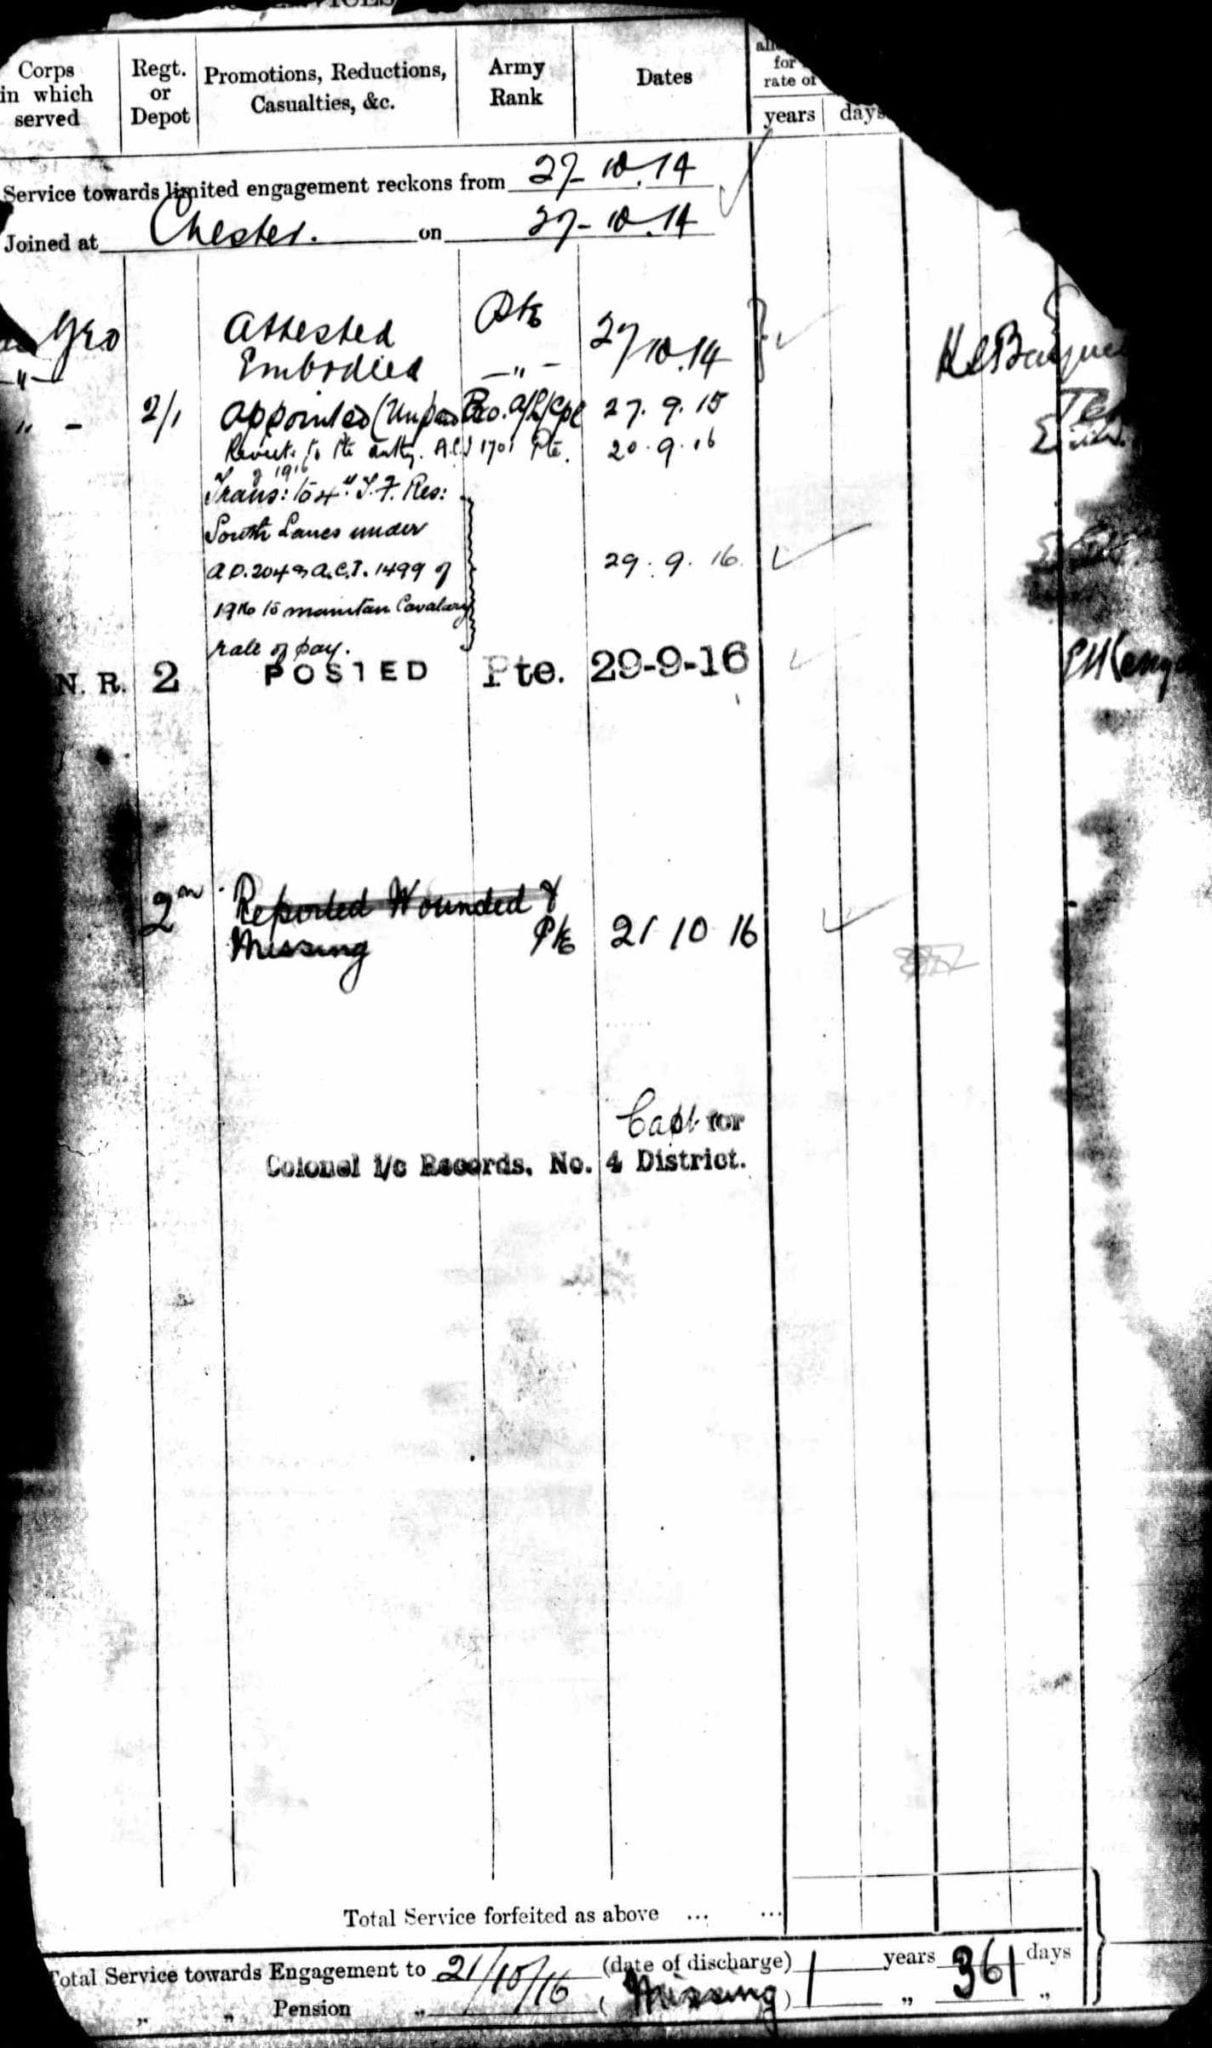 Corps
in which
served
Regt.
or
Depot
Promotions, Reductions,
Casualties, &c.
Army
Rank
Dates
for
rate of
years
days
Service towards limited engagement reckons from 27-10.14
Joined at Chester. on 27-10.14
Yeo Attested Pte 27/10.14
-"- Embodied -"-
" - 2/1 Appointed (Unpaid 27.9.15
Revert: to Pte 1701 Pte. 20.9.16
of 1916
Trans: to 4th T.F. Res:
South Lancs under
A.O.204 & A.C.I. 1499 of 29.9.16.
1916 to maintan Cavalary
rate of pay.
N. R. 2 POSTED Pte. 29-9-16
2nd Reported Wounded &
Missing Pte 21 10 16
Capt for
Colonel i/c Records, No. 4 District.
Total Service forfeited as above ... ...
Total Service towards Engagement to 21/10/16 (date of discharge) 1 years 361 days
" " Pension " (Missing) " "